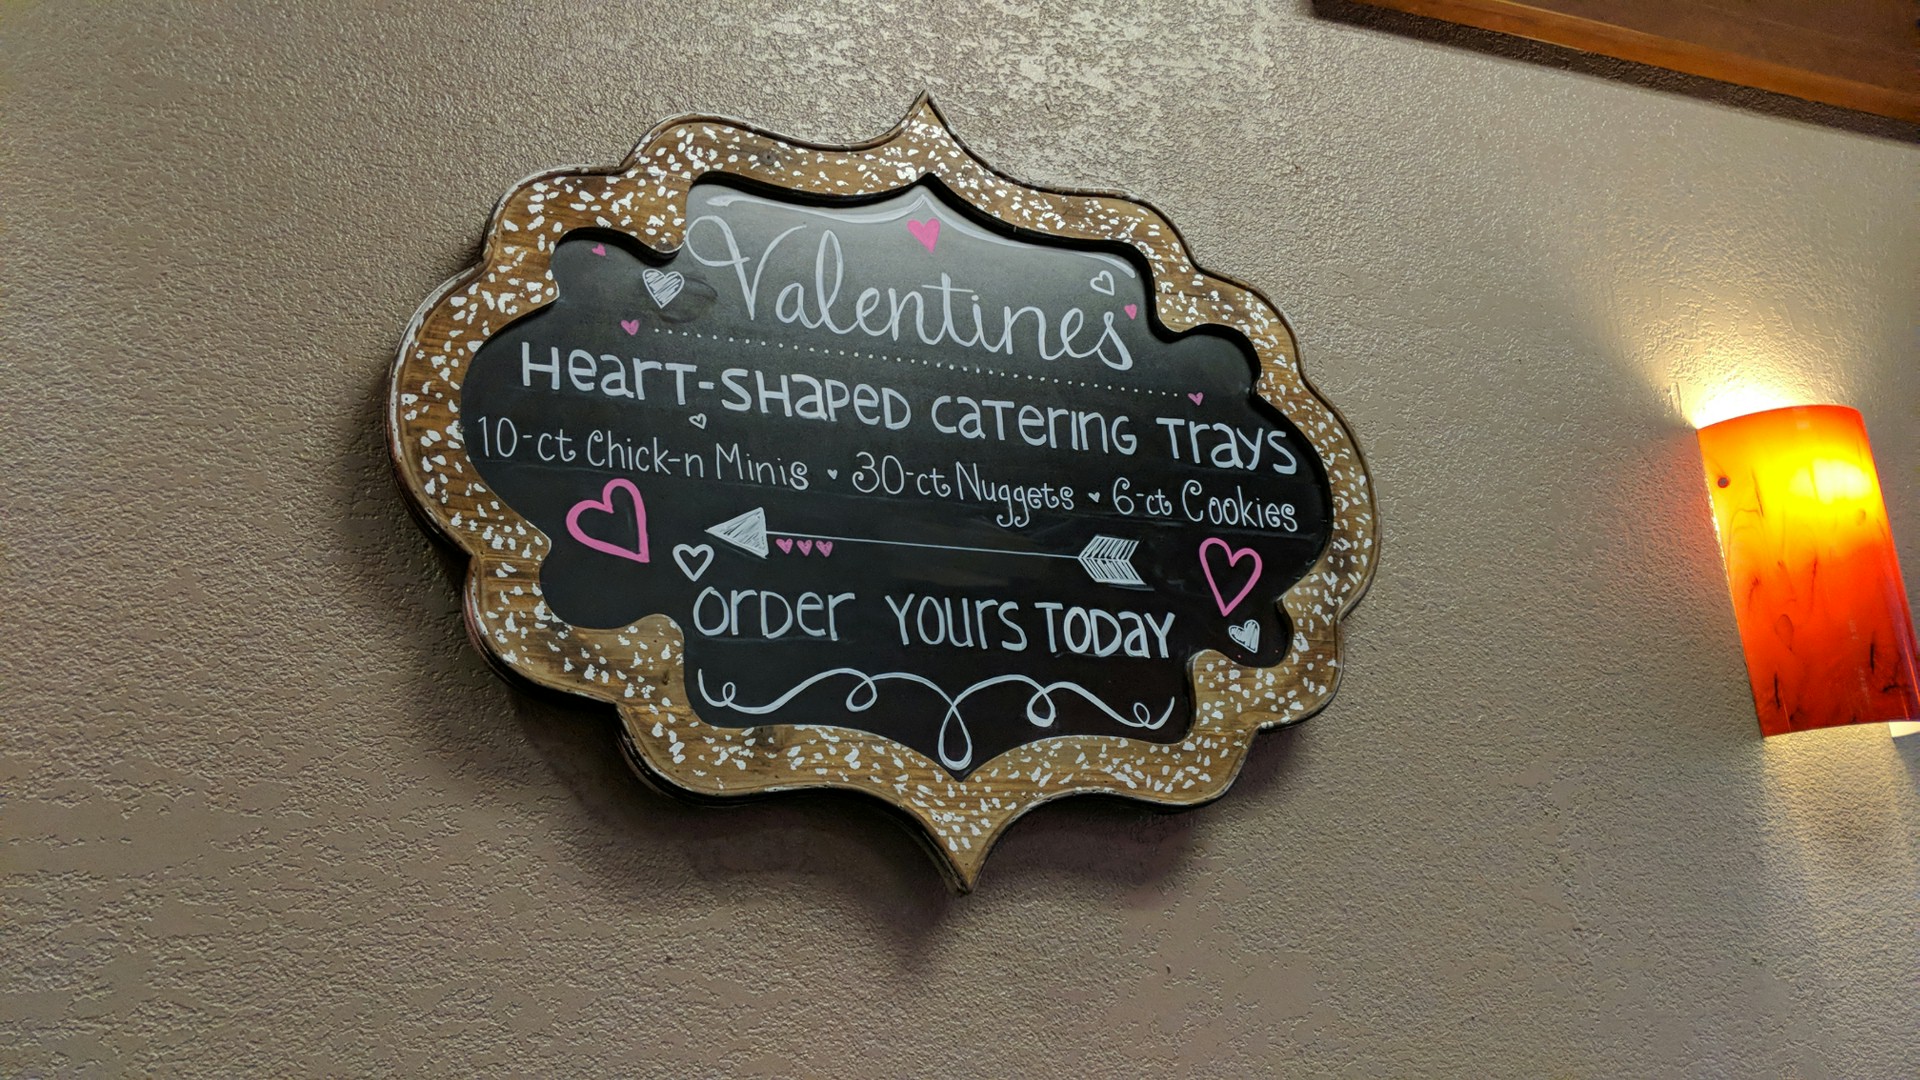 Valentines
HearT-SHaPED caTerinG Trays
10-ct Chick-n Minis • 30-ct Nuggets • 6-ct Cookies
orDer yours TODay